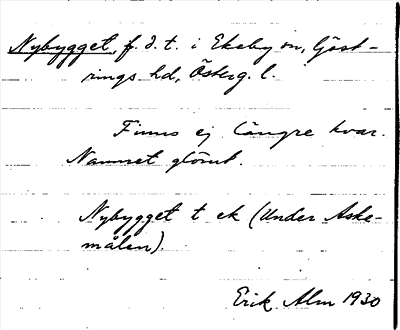 Nybygget, f.d.t. i Ekeby sn, Göst-
rings hd, Österg. l.
Finns ej längre kvar.
Namnet glömt.
Nybygget t ek (Under Aske-
målen).
Erik Alm 1930